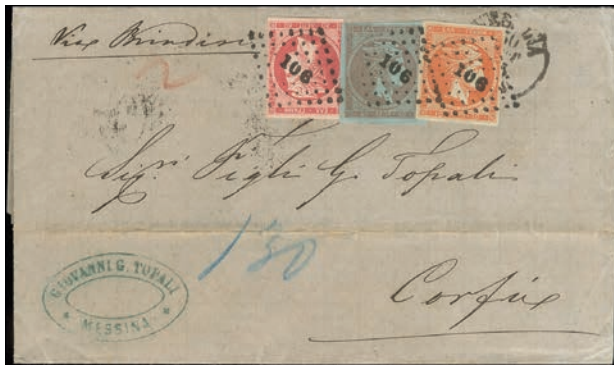 Via Brindisi
2
106
106
106
Sigri Figli G. Topali
1 30
Corfù
GIOVANNI G. TOPALI
* MESSINA *